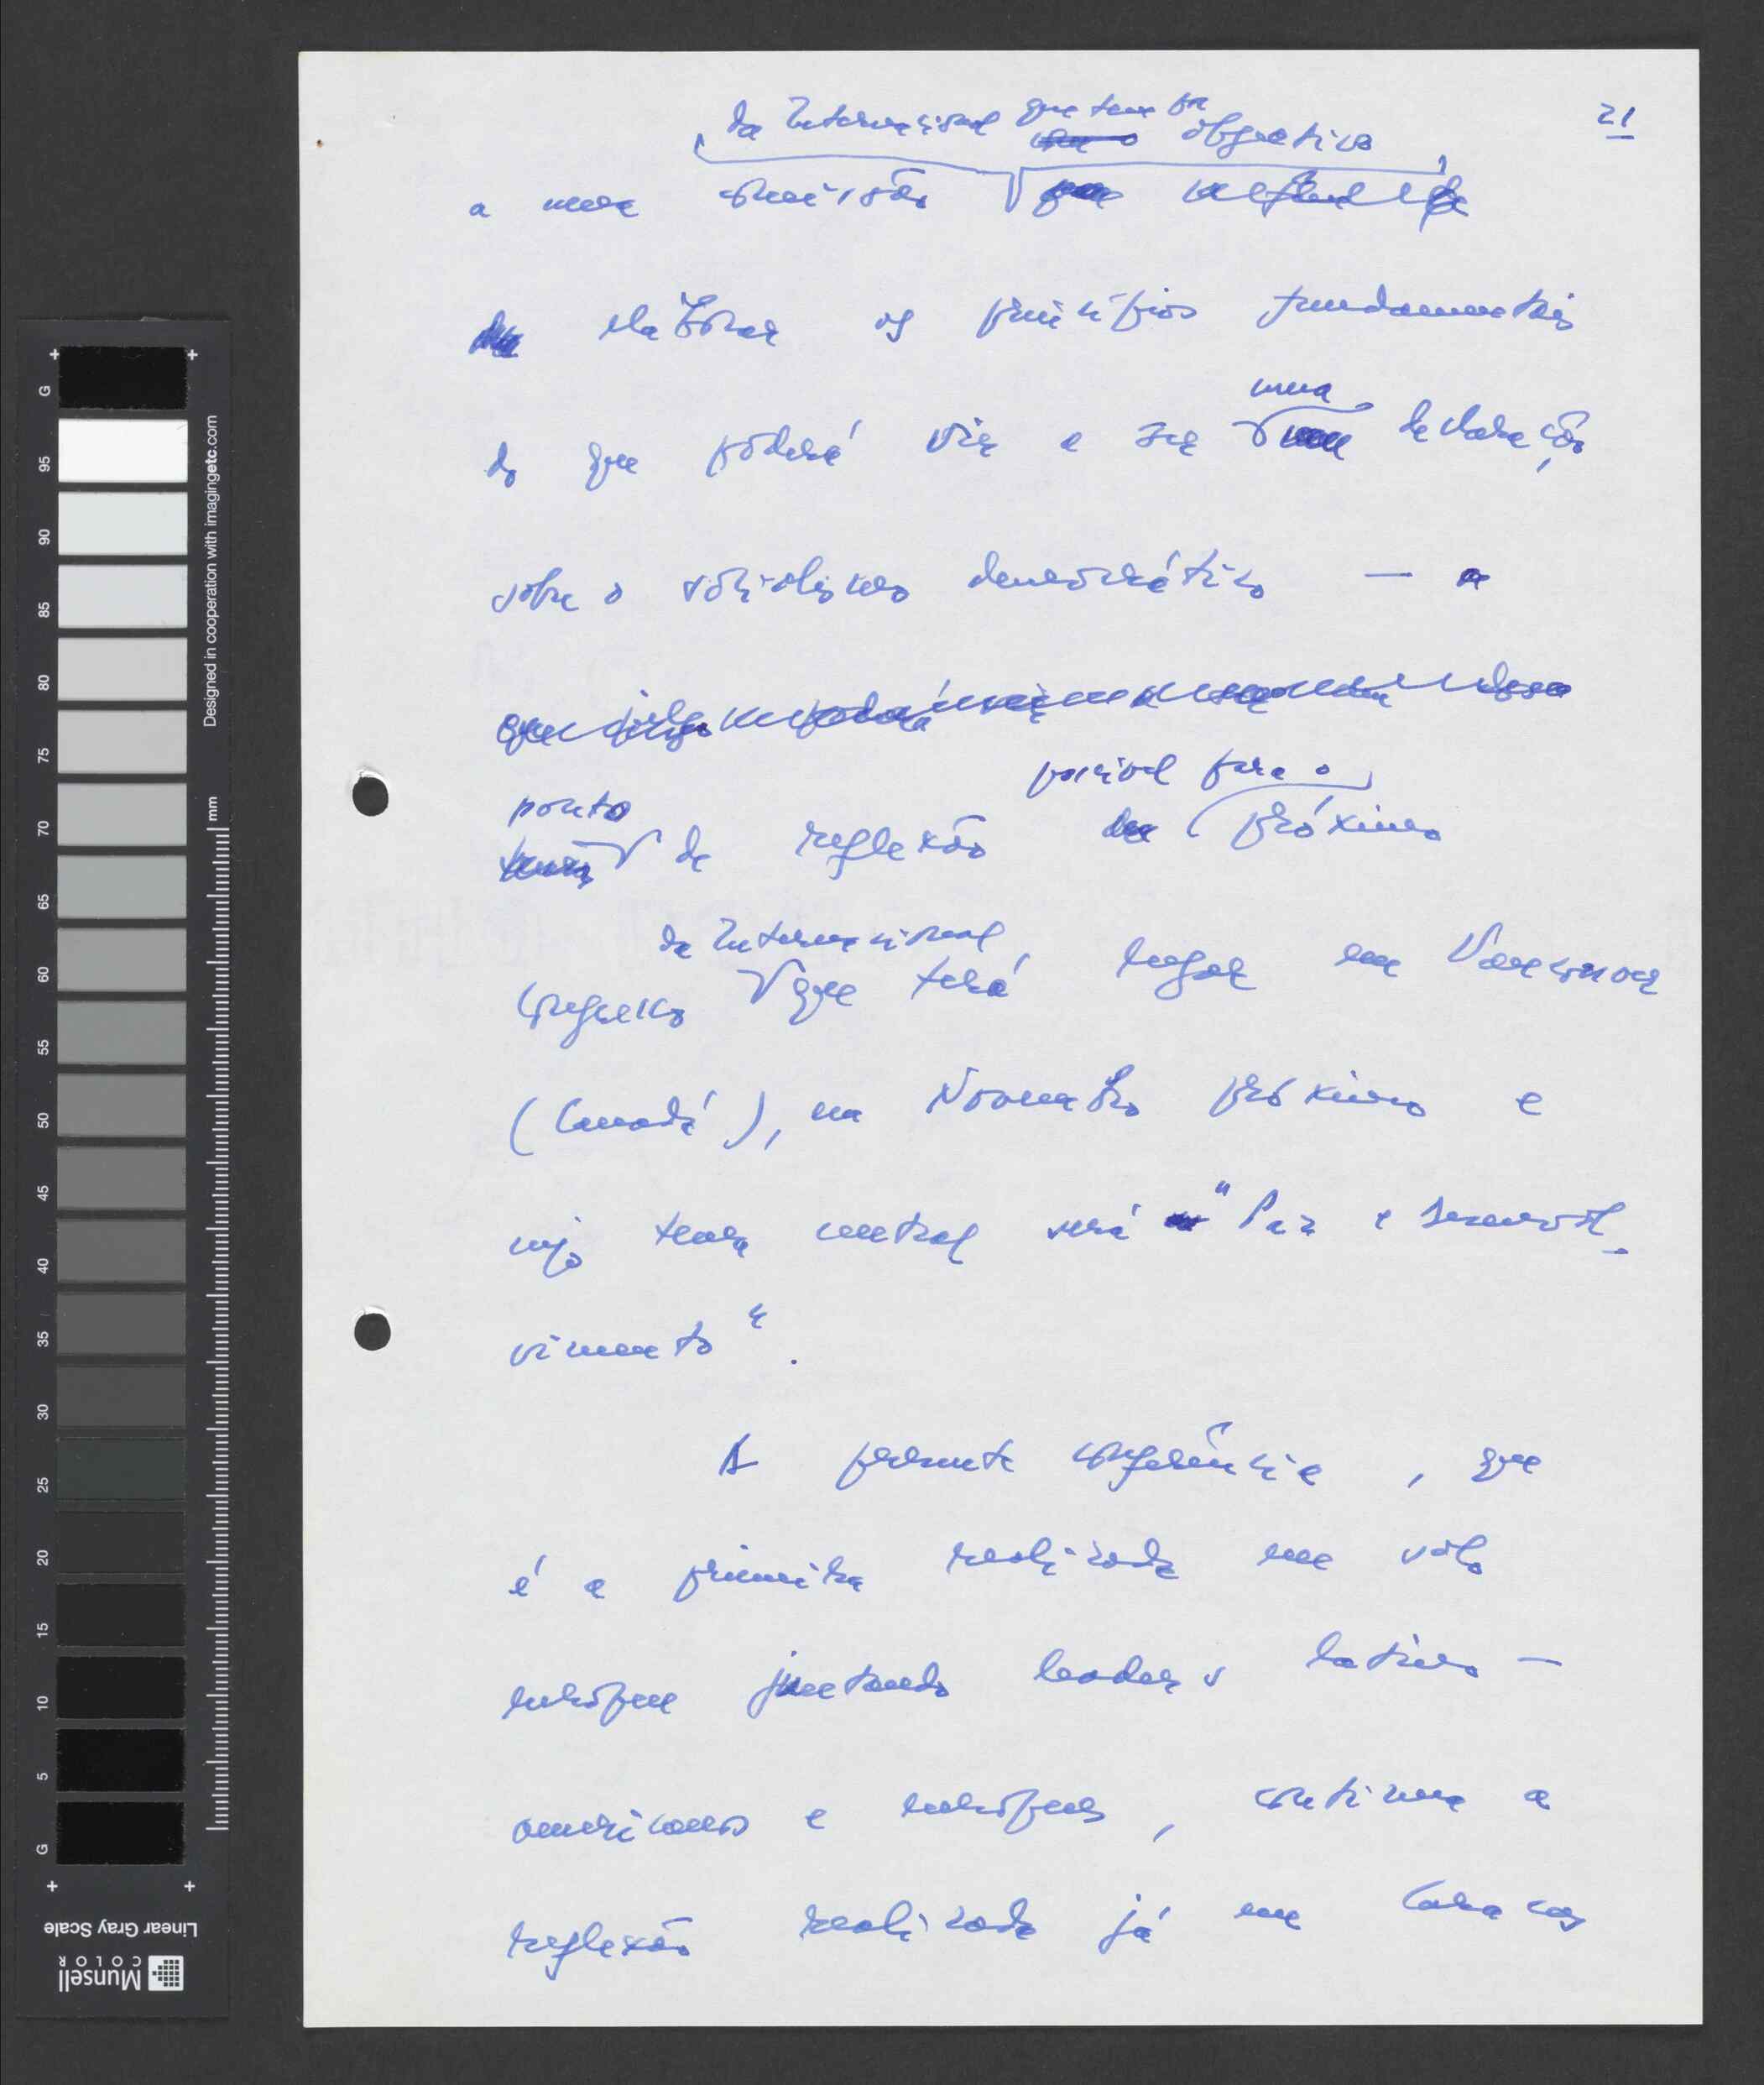 21
da Internacional que tem por objectivo
a uma comissão
elaborar os princípios fundamentais
uma
do que poderá vir a ser declaração
sobre o socialismo democrático —
possível para o
ponto
de reflexão próximo
da Internacional
congresso que terá lugar em Vancouver
(Canadá), em Novembro próximo e
cujo tema central será "Paz e Desenvol-
vimento".
A presente conferência, que
é a primeira realizada em solo
europeu juntando leaders latino-
americanos e europeus, continua a
reflexão realizada já em Caracas
G
95
90
85
80
75
70
65
60
55
50
45
40
35
30
25
20
15
10
5
G
Designed in cooperation with imagingetc.com
mm
Linear Gray Scale
Munsell
COLOR